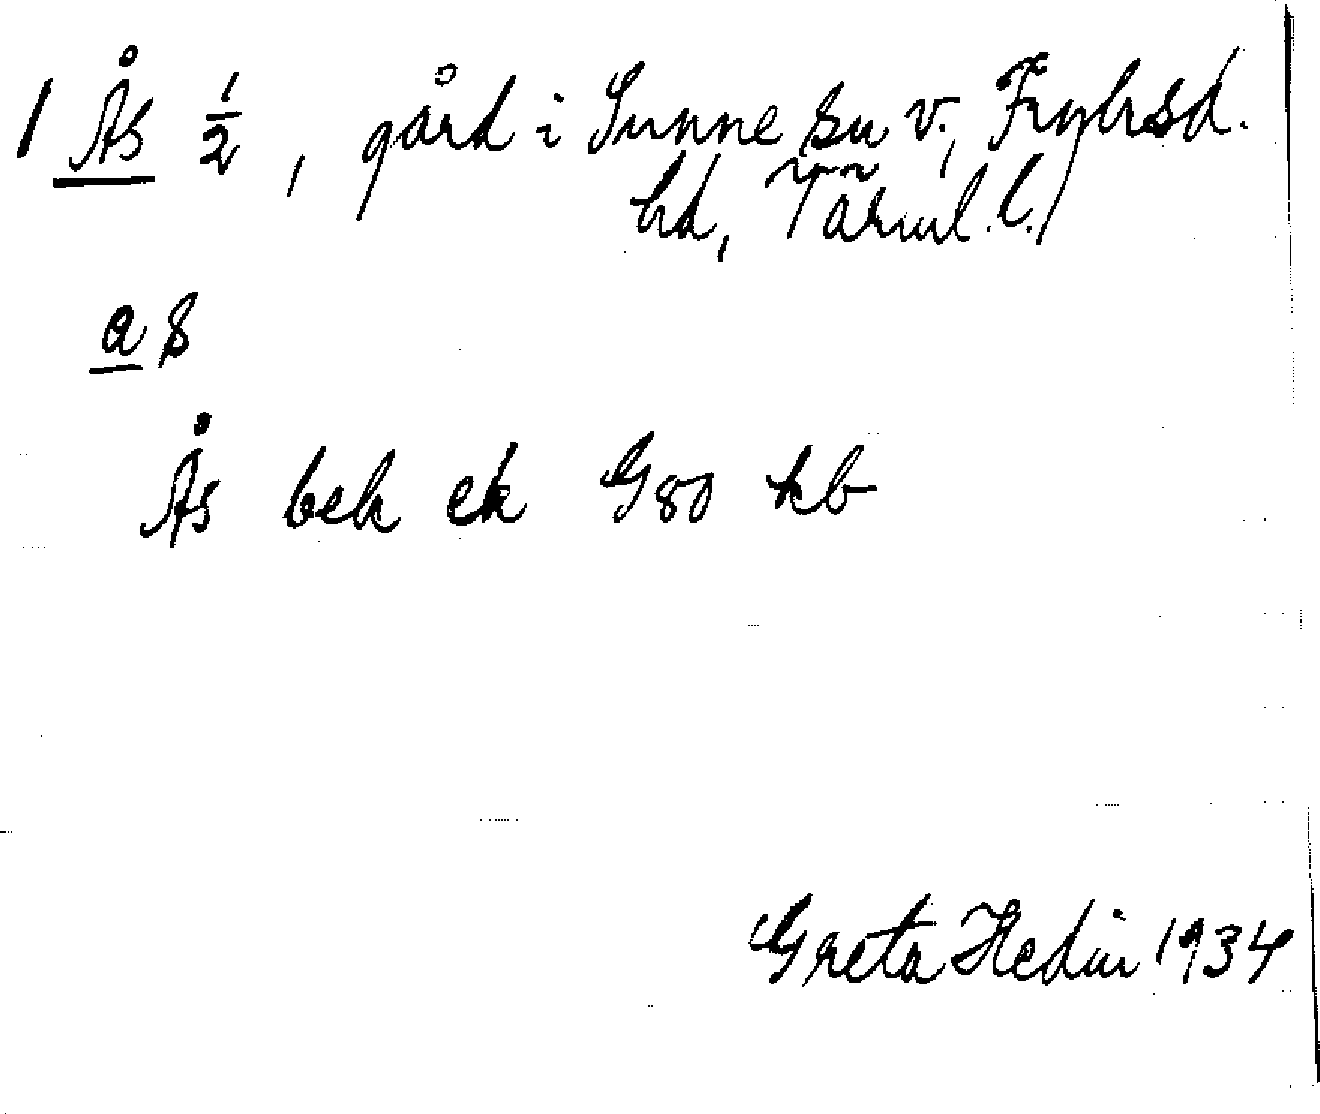 1 Ås 1/2, gård i Sunne sn v., Fryksd.
hd, Värml. l.
a s
Ås bek ek G80 kb
Greta Hedin 1934